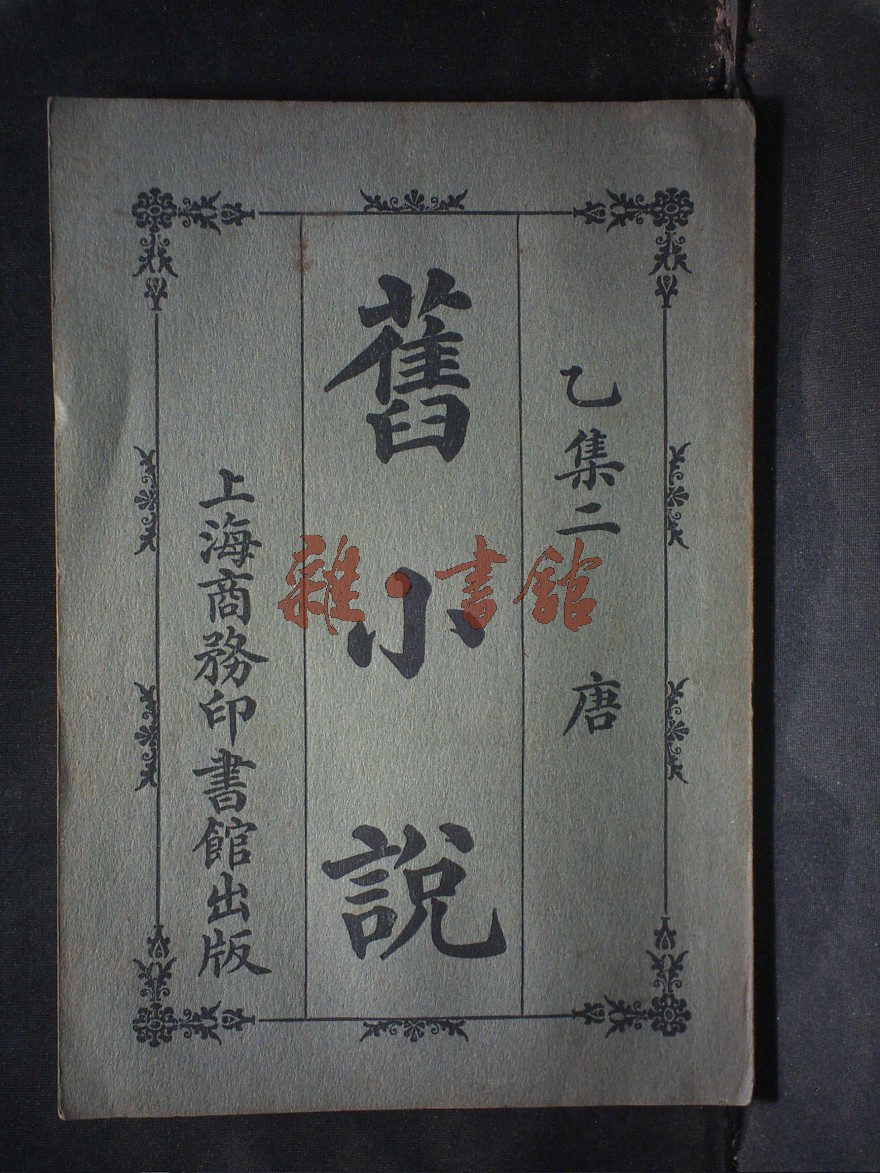 乙集二　唐
舊小說
上海商務印書館出版
雜·書館